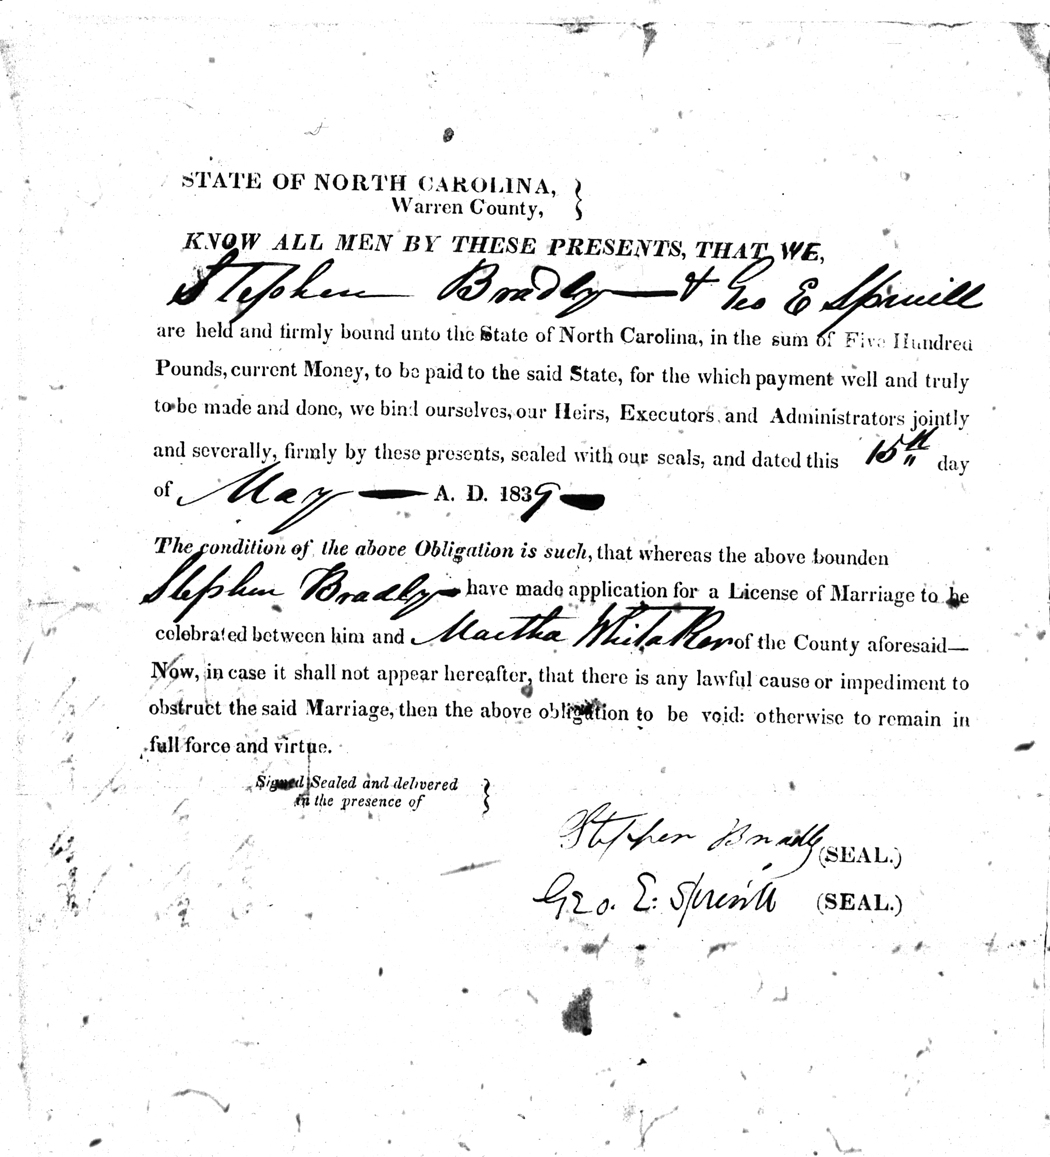 STATE OF NORTH CAROLINA,
Warren County,
KNOW ALL MEN BY THESE PRESENTS, THAT WE,
Stephen Bradly & Geo E Spruill
are held and firmly bound unto the State of North Carolina, in the sum of Five Hundred
Pounds, current Money, to be paid to the said State, for the which payment well and truly
to be made and done, we bind ourselves, our Heirs, Executors and Administrators jointly
and severally, firmly by these presents, sealed with our seals, and dated this 15th day
of May A. D. 1839
The condition of the above Obligation is such, that whereas the above bounden
Stephen Bradly have made application for a License of Marriage to be
celebrated between him and Martha Whitaker of the County aforesaid—
Now, in case it shall not appear hereafter, that there is any lawful cause or impediment to
obstruct the said Marriage, then the above obligation to be void: otherwise to remain in
full force and virtue.
Signed Sealed and delivered
in the presence of
Stephen Bradly (SEAL.)
Geo. E. Spruill (SEAL.)